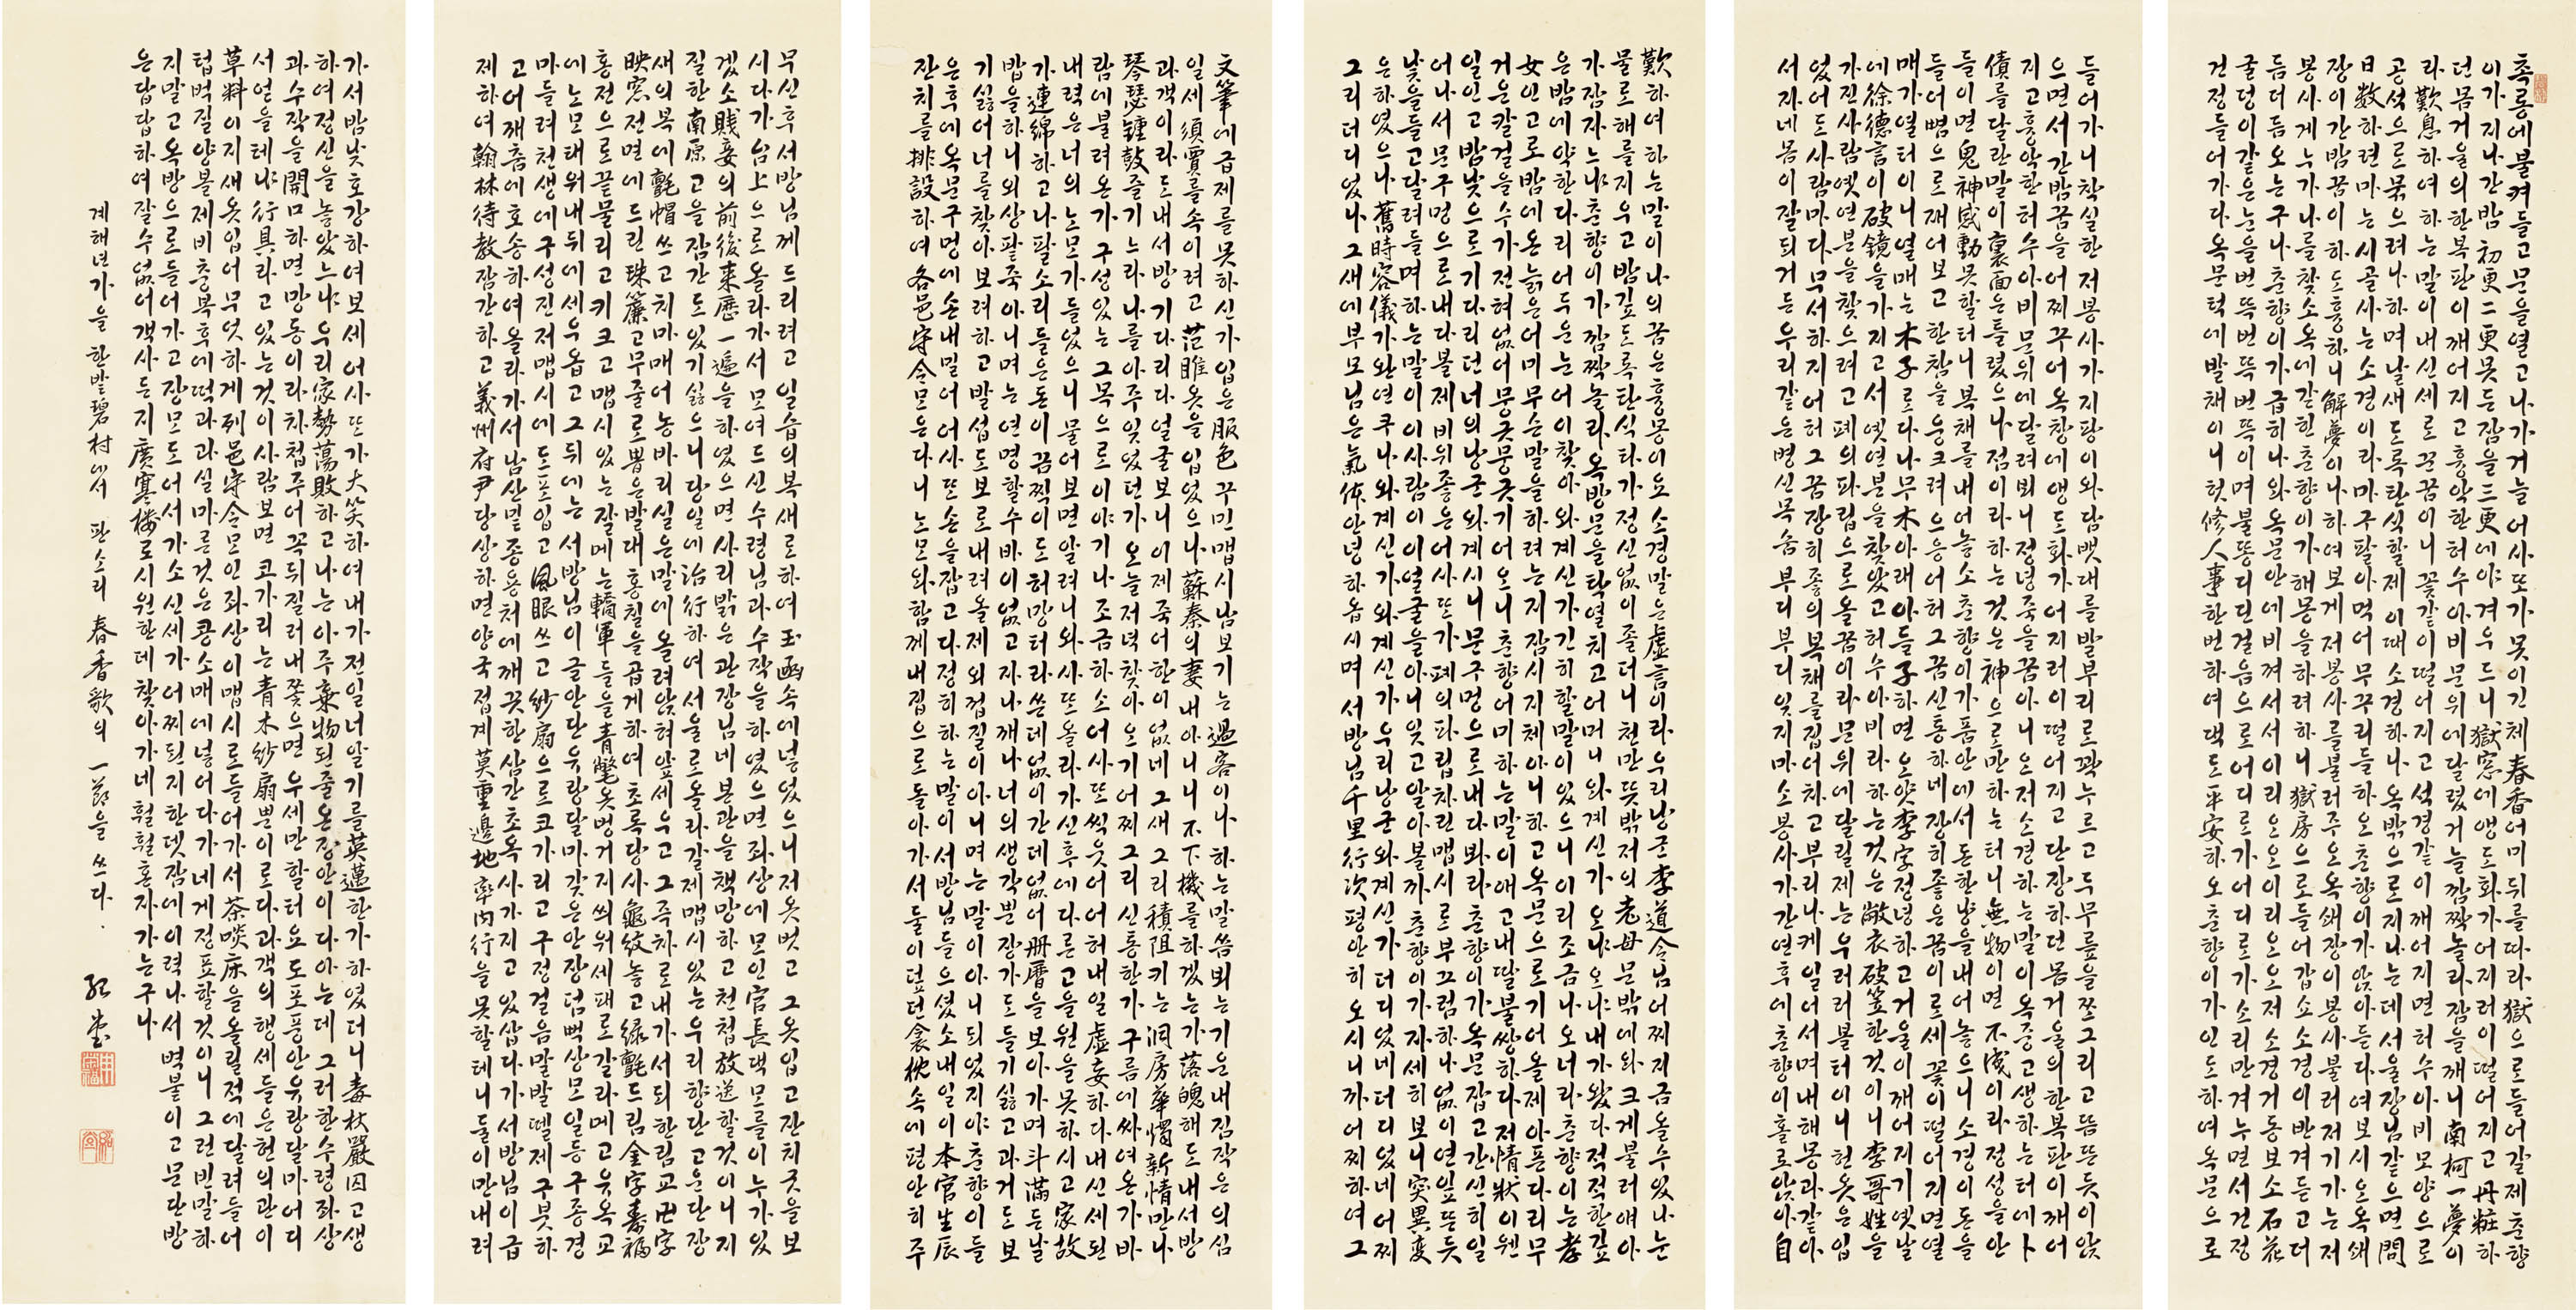 촉롱에불켜들고문을열고나가거늘어사또가못이긴체春香어미뒤를따라獄으로들어갈제춘향
이가지나간밤初更二更못든잠을三更에야겨우드니獄窓에앵도화가어지러이떨어지고丹粧하
던몸거울의한복판이깨어지고흉악한허수아비문위에달렸거늘깜짝놀라잠을깨니南柯一夢이
라歎息하여하는말이내신세로꾼꿈이니꽃같이떨어지고석경같이깨어지면허수아비모양으로
공석으로묶으려나하며날새도록탄식할제이때소경하나옥밖으로지나는데서울장님같으면問
日数하련마는시골사는소경이라마구팔아먹어무꾸리들하오춘향이가앉아듣다여보시오옥쇄
장이간밤꿈이하도흉하니解夢이나하여보게저봉사를불러주오옥쇄장이봉사불러저기가는저
봉사게누가나를찾소옥에갇힌춘향이가해몽을하려하니獄房으로들어갑쇼소경이반겨듣고더
듬더듬오는구나춘향이가급히나와옥문안에비껴서서이리오오이리오오저소경거동보소石花
굴덩이같은눈을번뜩번뜩번뜩이며불똥디딘걸음으로어디로가어디로가소리만겨누면서건정
건정들어가다옥문턱에발채이니헛修人事한번하여댁도平安하오춘향이가인도하여옥문으로
들어가니착실한저봉사가지팡이와담뱃대를발부리로꽉누르고두무릎을쪼그리고뜸뜬듯이앉
으면서간밤꿈을어찌꾸어옥창에앵도화가어지러이떨어지고단장하던몸거울의한복판이깨어
지고흉악한허수아비문위에달려뵈니정녕죽을꿈아니오저소경하는말이옥중고생하는터에卜
債를달란말이裏面은틀렸으나점이라하는것은神으로만하는터니無物이면不成이라정성을안
들이면鬼神感動못할터니복채를내어놓소춘향이가품안에서돈한냥을내어놓으니소경이돈을
들어뺨으로재어보고한참을웅크려으응어허그꿈신통하네장히좋은꿈이로세꽃이떨어지면열
매가열터이니열매는木子로다나무木아래아들子하면오얏李字정녕하고거울이깨어지기옛날
에徐德言이破鏡을가지고서옛연분을찾았고허수아비라하는것은敝衣破笠한것이니李哥姓을
가진사람옛연분을찾으려고폐의파립으로올꿈이라문위에달릴제는우러러볼터이니헌옷은입
었어도사람마다무서하지어허그꿈장히좋의복채를집어차고부리나케일어서며내해몽과같아
서자네몸이잘되거든우리같은병신목숨부디부디잊지마소봉사가간연후에춘향이홀로앉아自
歎하여하는말이나의꿈은흉몽이오소경말은虛言이라우리낭군李道令님어찌지금올수있나눈
물로해를지우고밤깊도록탄식타가정신없이졸더니천만뜻밖저의老母문밖에와크게불러얘아
가잠자느냐춘향이가깜짝놀라옥방문을탁열치고어머니와계신가오냐오냐내가왔다적적한깊
은밤에약한다리어두운눈어이찾아와계신가긴히할말이있으니이리조금나오너라춘향이는孝
女인고로밤에온늙은어미무슨말을하려는지잠시지체아니하고옥문으로기어올제아픈다리무
거운칼걸을수가전혀없어뭉긋뭉긋기어오니춘향어미하는말이애고내딸불쌍하다저情狀이웬
일인고밤낮으로기다리던너의낭군와계시니문구멍으로내다봐라춘향이가옥문잡고간신히일
어나서문구멍으로내다볼제비위좋은어사또가폐의파립차린맵시로부끄럼하나없이연잎뜨듯
낯을들고달려들며하는말이이사람이이얼굴을아니잊고알아볼까춘향이가자세히보니突異変
은하였으나舊時容儀가완연쿠나와계신가와계신가우리낭군와계신가더디었네더디었네어찌
그리더디었나그새에부모님은氣体안녕하옵시며서방님千里行次평안히오시니까어찌하여그
文筆에급제를못하신가입은服色꾸민맵시남보기는過客이나하는말씀뵈는기운내짐작은의심
일세須賈를속이려고范睢옷을입었으나蘇秦의妻내아니니不下機를하겠는가落魄해도내서방
과객이라도내서방기다리다얼굴보니이제죽어한이없네그새그리積阻키는洞房華燭新情만나
琴瑟鍾鼓즐기느라나를아주잊었던가오늘저녁찾아오기어찌그리신통한가구름에싸여온가바
람에불려온가구성있는그목으로이야기나조금하소어사또씩웃어허내일虛妄하다내신세된
내력은너의노모가들었으니물어보면알려니와사또올라가신후에다른고을원을못하시고家故
가連綿하고나팔소리들은돈이끔찍이도허망터라쓴데없이간데없어冊曆을보아가며斗滿든날
밥을하니외상팥죽아니며는연명할수바이없고자나깨나너의생각뿐장가도들기싫고과거도보
기싫어너를찾아보려하고발섭도보로내려올제외겁질이아니며는말이아니되었지야춘향이들
은후에옥문구멍에손내밀어어사또손을잡고다정히하는말이서방님들으셨소내일이本官生辰
잔치를排設하여各邑守令모은다니노모와함께내집으로돌아가서둘이덮던衾枕속에평안히주
무신후서방님께드리려고일습의복새로하여玉函속에넣었으니저옷벗고그옷입고잔치굿을보
시다가台上으로올라가서모여드신수령님과수작을하였으면좌상에모인官長댁모를이누가있
겠소賤妾의前後来歷一遍을하였으면사리밝은관장님네본관을책망하고천첩放送할것이니지
질한南原고을잠간도있기싫으니당일에治行하여서울로올라갈제맵시있는우리향단고운단장
새의복에氈帽쓰고치마매어농바리실은말에올려앉혀앞세우고그즉차로내가서되한림교卍字
映窓전면에드린珠簾고무줄로뽑은발대홍칠을곱게하여초록당사龜紋놓고綠氈드림金字壽福
홍전으로끝물리고키크고맵시있는잘메는轎軍들을青氅옷벙거지씌워세패로갈라메고유옥교
에노모태워내뒤에세우옵고그뒤에는서방님이글안단유랑달마갖은안장덤뻑상모일등구종경
마들려천생에구성진저맵시에도포입고風眼쓰고紗扇으로코가리고구정걸음말발뗄제구붓하
고어깨춤에호송하여올라가서남산밑종용처에깨끗한삼간초옥사가지고있삽다가서방님이급
제하여翰林待教잠간하고義州府尹당상하면양국접계莫重邊地率內行을못할테니둘이만내려
가서밤낮호강하여보세어사또가大笑하여내가전일너알기를英邁한가하였더니毒杖嚴囚고생
하여정신을놓았느냐우리家勢蕩敗하고나는아주棄物된줄온장안이다아는데그러한수령좌상
과수작을開口하면망동이라차첩주어꼭뒤질러내쫓으면우세만할터요도포풍안유랑달마어디
서얻을테냐行具라고있는것이사람보면코가리는青木紗扇뿐이로다과객의행세들은현의관이
草料이지새옷입어무엇하게列邑守令모인좌상이맵시로들어가서茶啖床을올릴적에달려들어
텁벅질양볼제비충복후에떡과과실마른것은콩소매에넣어다가네게정표할것이니그런빈말하
지말고옥방으로들어가고장모도어서가소신세가어찌된지한뎃잠에이력나서벽붙이고문단방
은답답하여잘수없어객사든지廣寒樓로시원한데찾아가네훨훨혼자가는구나
계해년가을 한밭碧村에서 판소리 春香歌의 一節을 쓰다.